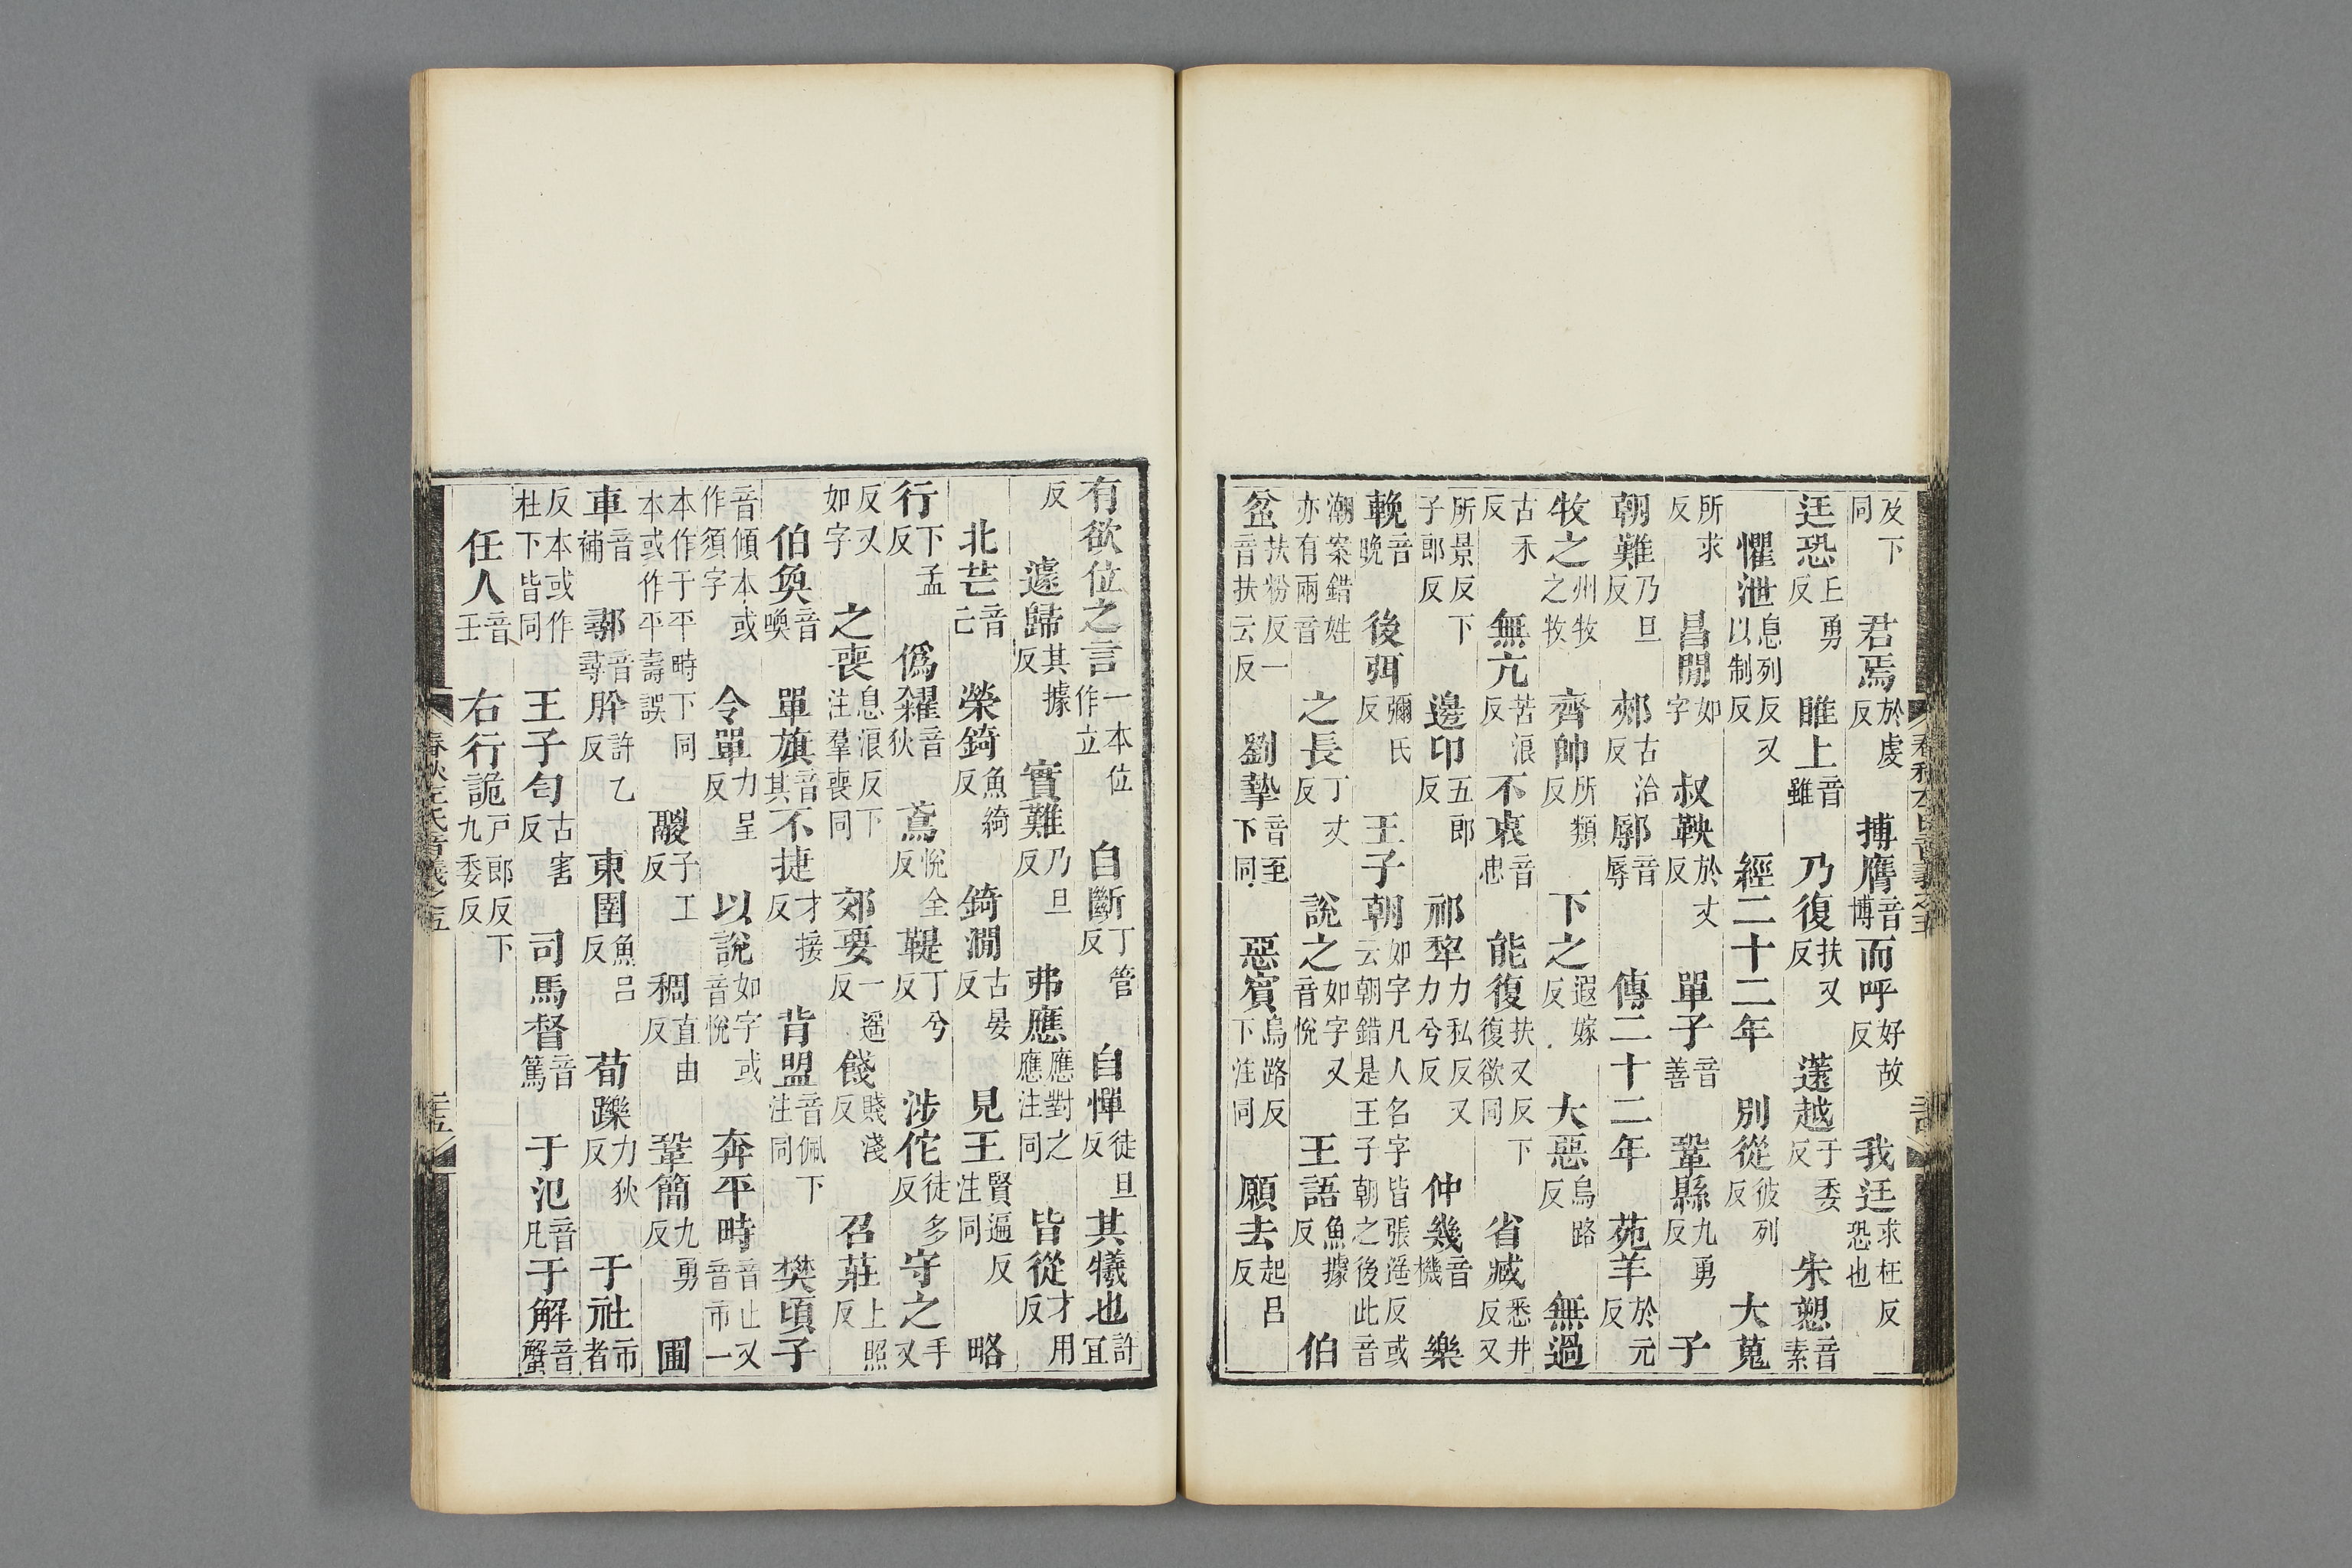 及下同君焉於虔反搏膺音博而呼好故反我迋求枉反恐也
迋恐上勇反睢上音雖乃復扶又反薳越于委反朱愬音素
懼泄息列反又以制反經二十二年別從彼列反大蒐
所求反昌閒如字叔鞅於丈反單子音善鞏縣九勇反子
朝難乃旦反郟古洽反鄏音辱傳二十二年苑羊於元反
牧之州牧之牧齊帥所類反下之遐嫁反大惡烏路反無過
古禾反無亢苦浪反不衷音忠能復扶又反下復欲同省臧悉井反又
所景反下子郎反邊卬五郎反祁犂力私反又力兮反仲幾音機樂
輓音晚後弭彌氏反王子朝如字凡人名字皆張遥反或云朝錯是王子朝之後此音
潮案錯姓亦有兩音之長丁丈反說之如字又音悅王語魚據反伯
盆扶粉反一音扶云反劉摯音至下同惡賓烏路反下注同願去起呂反
有欲位之言一本位作立自斷丁管反自憚徒旦反其犧也許宜
反遽歸其據反實難乃旦反弗應應對之應注同皆從才用反
北芒音亡榮錡魚綺反錡澗古晏反見王賢遍反注同略
行下孟反僞糴音狄鳶悅全反鞮丁兮反涉佗徒多反守之手又
反又如字之喪息浪反下注羣喪同郊要一遥反餞賤淺反召莊上照反
伯奐音喚單旗音其不捷才接反背盟音佩下注同樊頃子
音傾本或作須字令單力呈反以說如字或音悅奔平畤音止又音市一
本作于平畤下同本或作平壽誤鬷子工反稠直由反鞏簡九勇反圃
車音補鄩音尋肸許乙反東圉魚呂反荀躒力狄反于社市者
反本或作杜下皆同王子匄古害反司馬督音篤于氾音凡于解音蟹
任人音壬右行詭戶郎反下九委反
春秋左氏音義之五